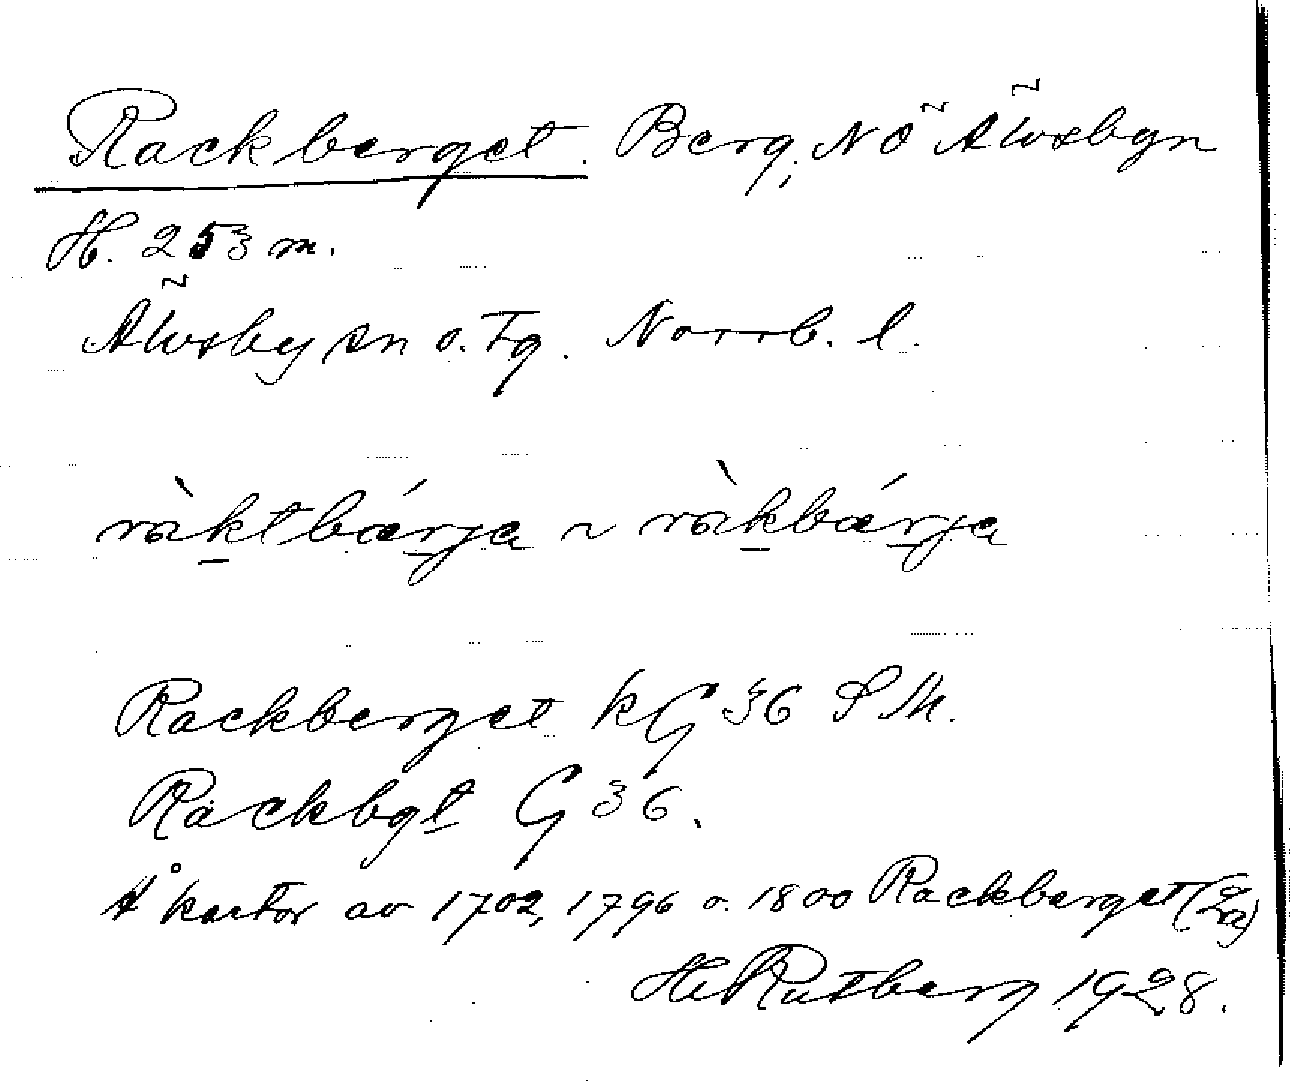 Rackberget. Berg, NÖ Älvsbyn
H. 253 m.
Älvsby sn o. Tg. Norrb. l.
ràktbǽrja ~ ràkbǽrja
Rackberget kG 36 S M.
Rackbgt G 36.
Å kartor av 1702, 1796 o. 1800 Rackberget
He Rutberg 1928.